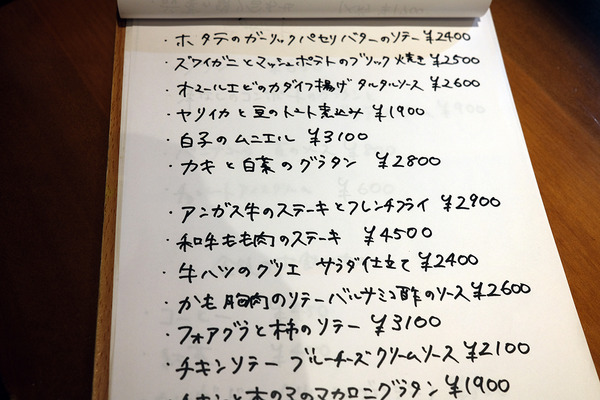 ・ホタテのガーリックパセリバターのソテー ¥2400
・ズワイガニとマッシュポテトのブリック焼き ¥2500
・オマールエビのカダイフ揚げ タルタルソース ¥2600
・ヤリイカと豆のトマト煮込み ¥1900
・白子のムニエル ¥3100
・カキと白菜のグラタン ¥2800
・アンガス牛のステーキとフレンチフライ ¥2900
・和牛もも肉のステーキ ¥4500
・牛ハツのグリエ サラダ仕立て ¥2400
・かも胸肉のソテーバルサミコ酢のソース ¥2600
・フォアグラと柿のソテー ¥3100
・チキンソテー ブルーチーズクリームソース ¥2100
・チキンと木の子のマカロニグラタン ¥1900